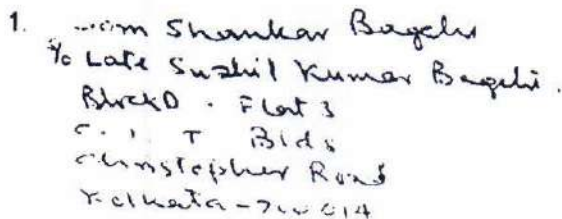 1. Shankar Bagchi
% Late Sushil Kumar Bagchi.
Block D. Flat 3
C. I T Blds
Christopher Road
Kolkata-700014